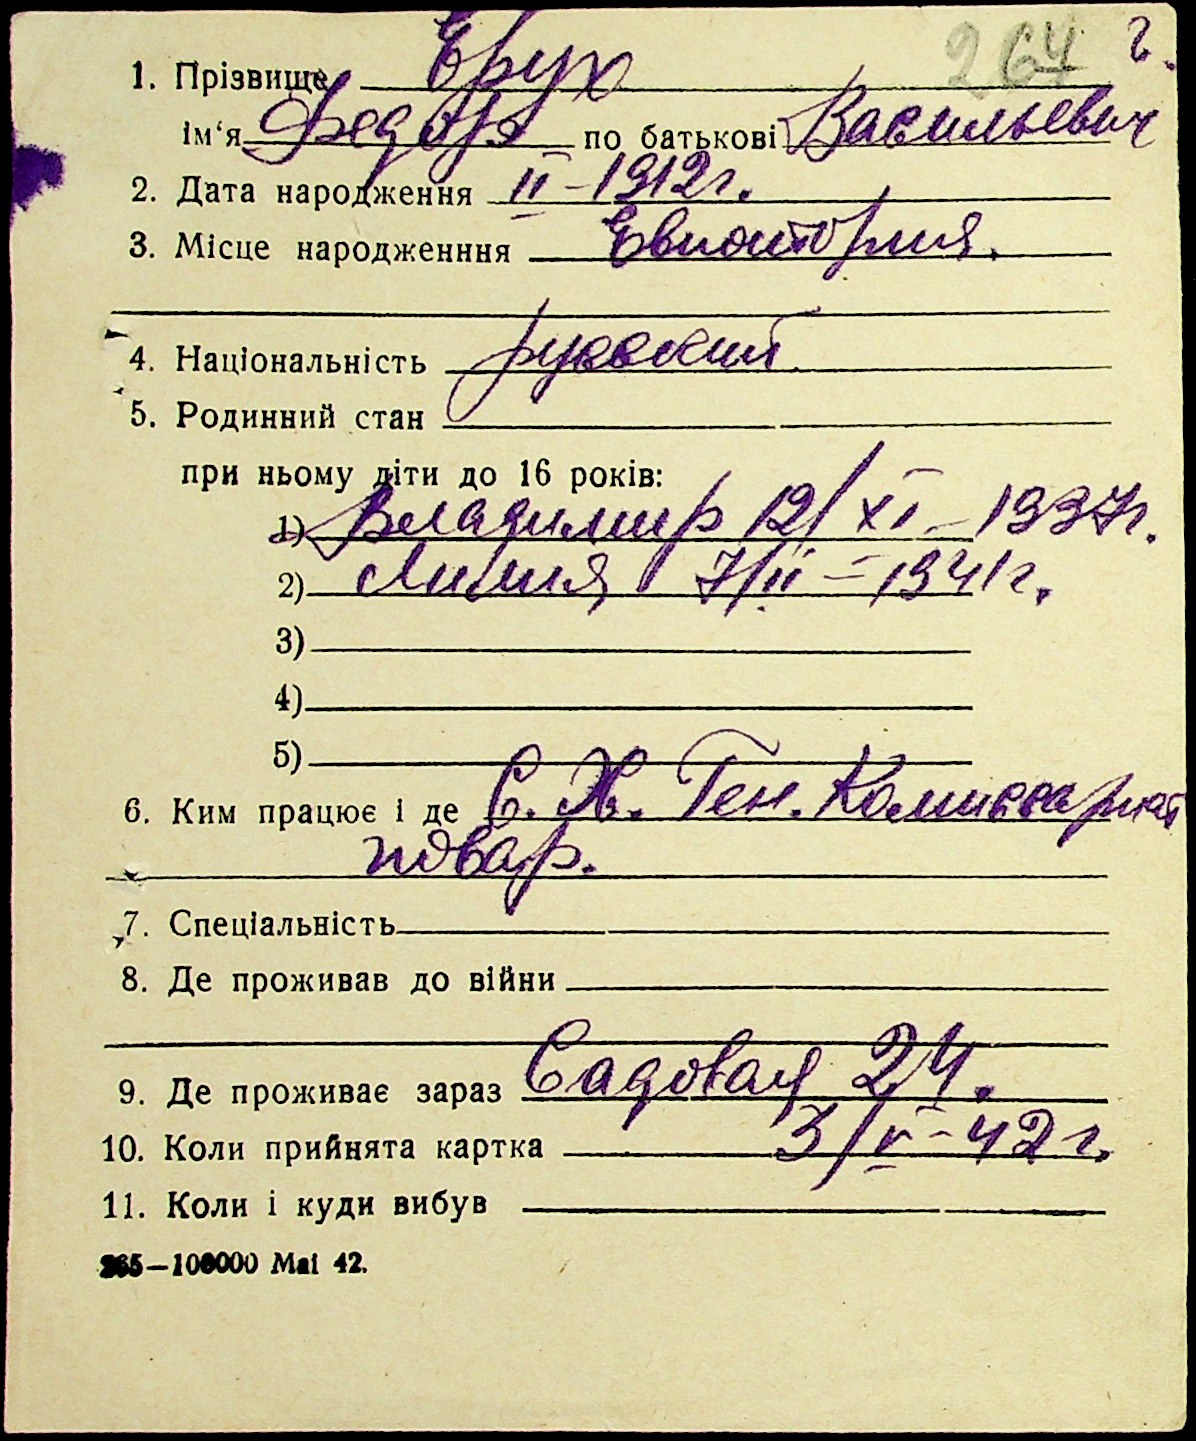 264 г.
1. Прізвище Ерух
ім‘я Федор по батькові Васильевич
2. Дата народження II – 1912 г.
3. Місце народженння Евпатория.
4. Національність русский
5. Родинний стан
при ньому діти до 16 років:
1) Владимир 12/XI – 1937 г.
2) Лилия 7/II – 1941 г.
3)
4)
5)
6. Ким працює і де С. Х. Ген. Комиссариат
повар.
7. Спеціальність
8. Де проживав до війни
9. Де проживає зараз Садовая 24.
10. Коли прийнята картка 3/V – 42 г.
11. Коли і куди вибув
265—100000 Mai 42.